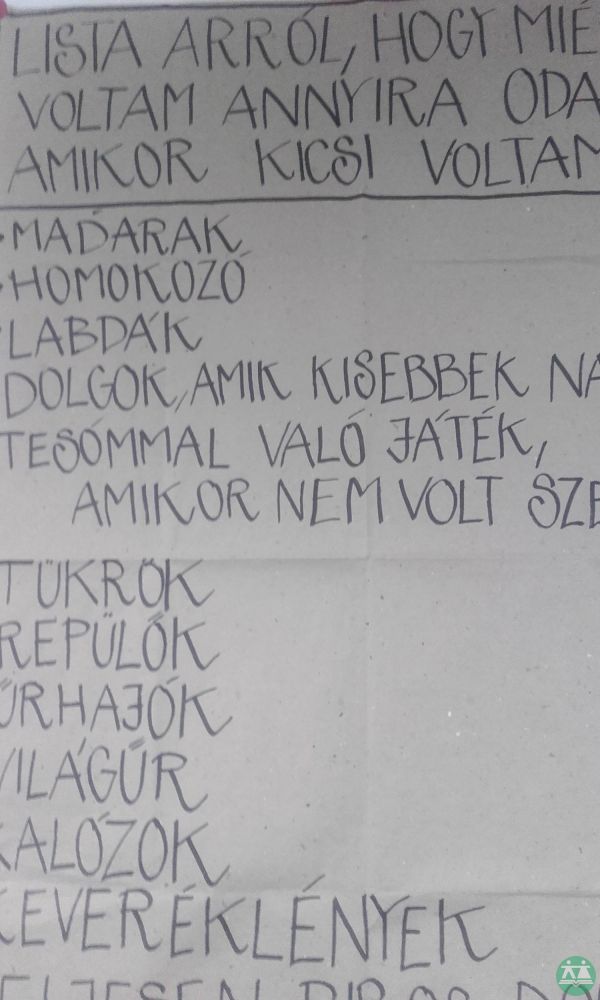 LISTA ARRÓL, HOGY MIÉ
VOLTAM ANNYIRA ODA
AMIKOR KICSI VOLTAM
MADARAK
HOMOKOZÓ
LABDÁK
DOLGOK, AMIK KISEBBEK NÁ
TESÓMMAL VALÓ JÁTÉK,
AMIKOR NEM VOLT SZE
TÜKRÖK
REPÜLŐK
ŰRHAJÓK
VILÁGŰR
KALÓZOK
KEVERÉKLÉNYEK